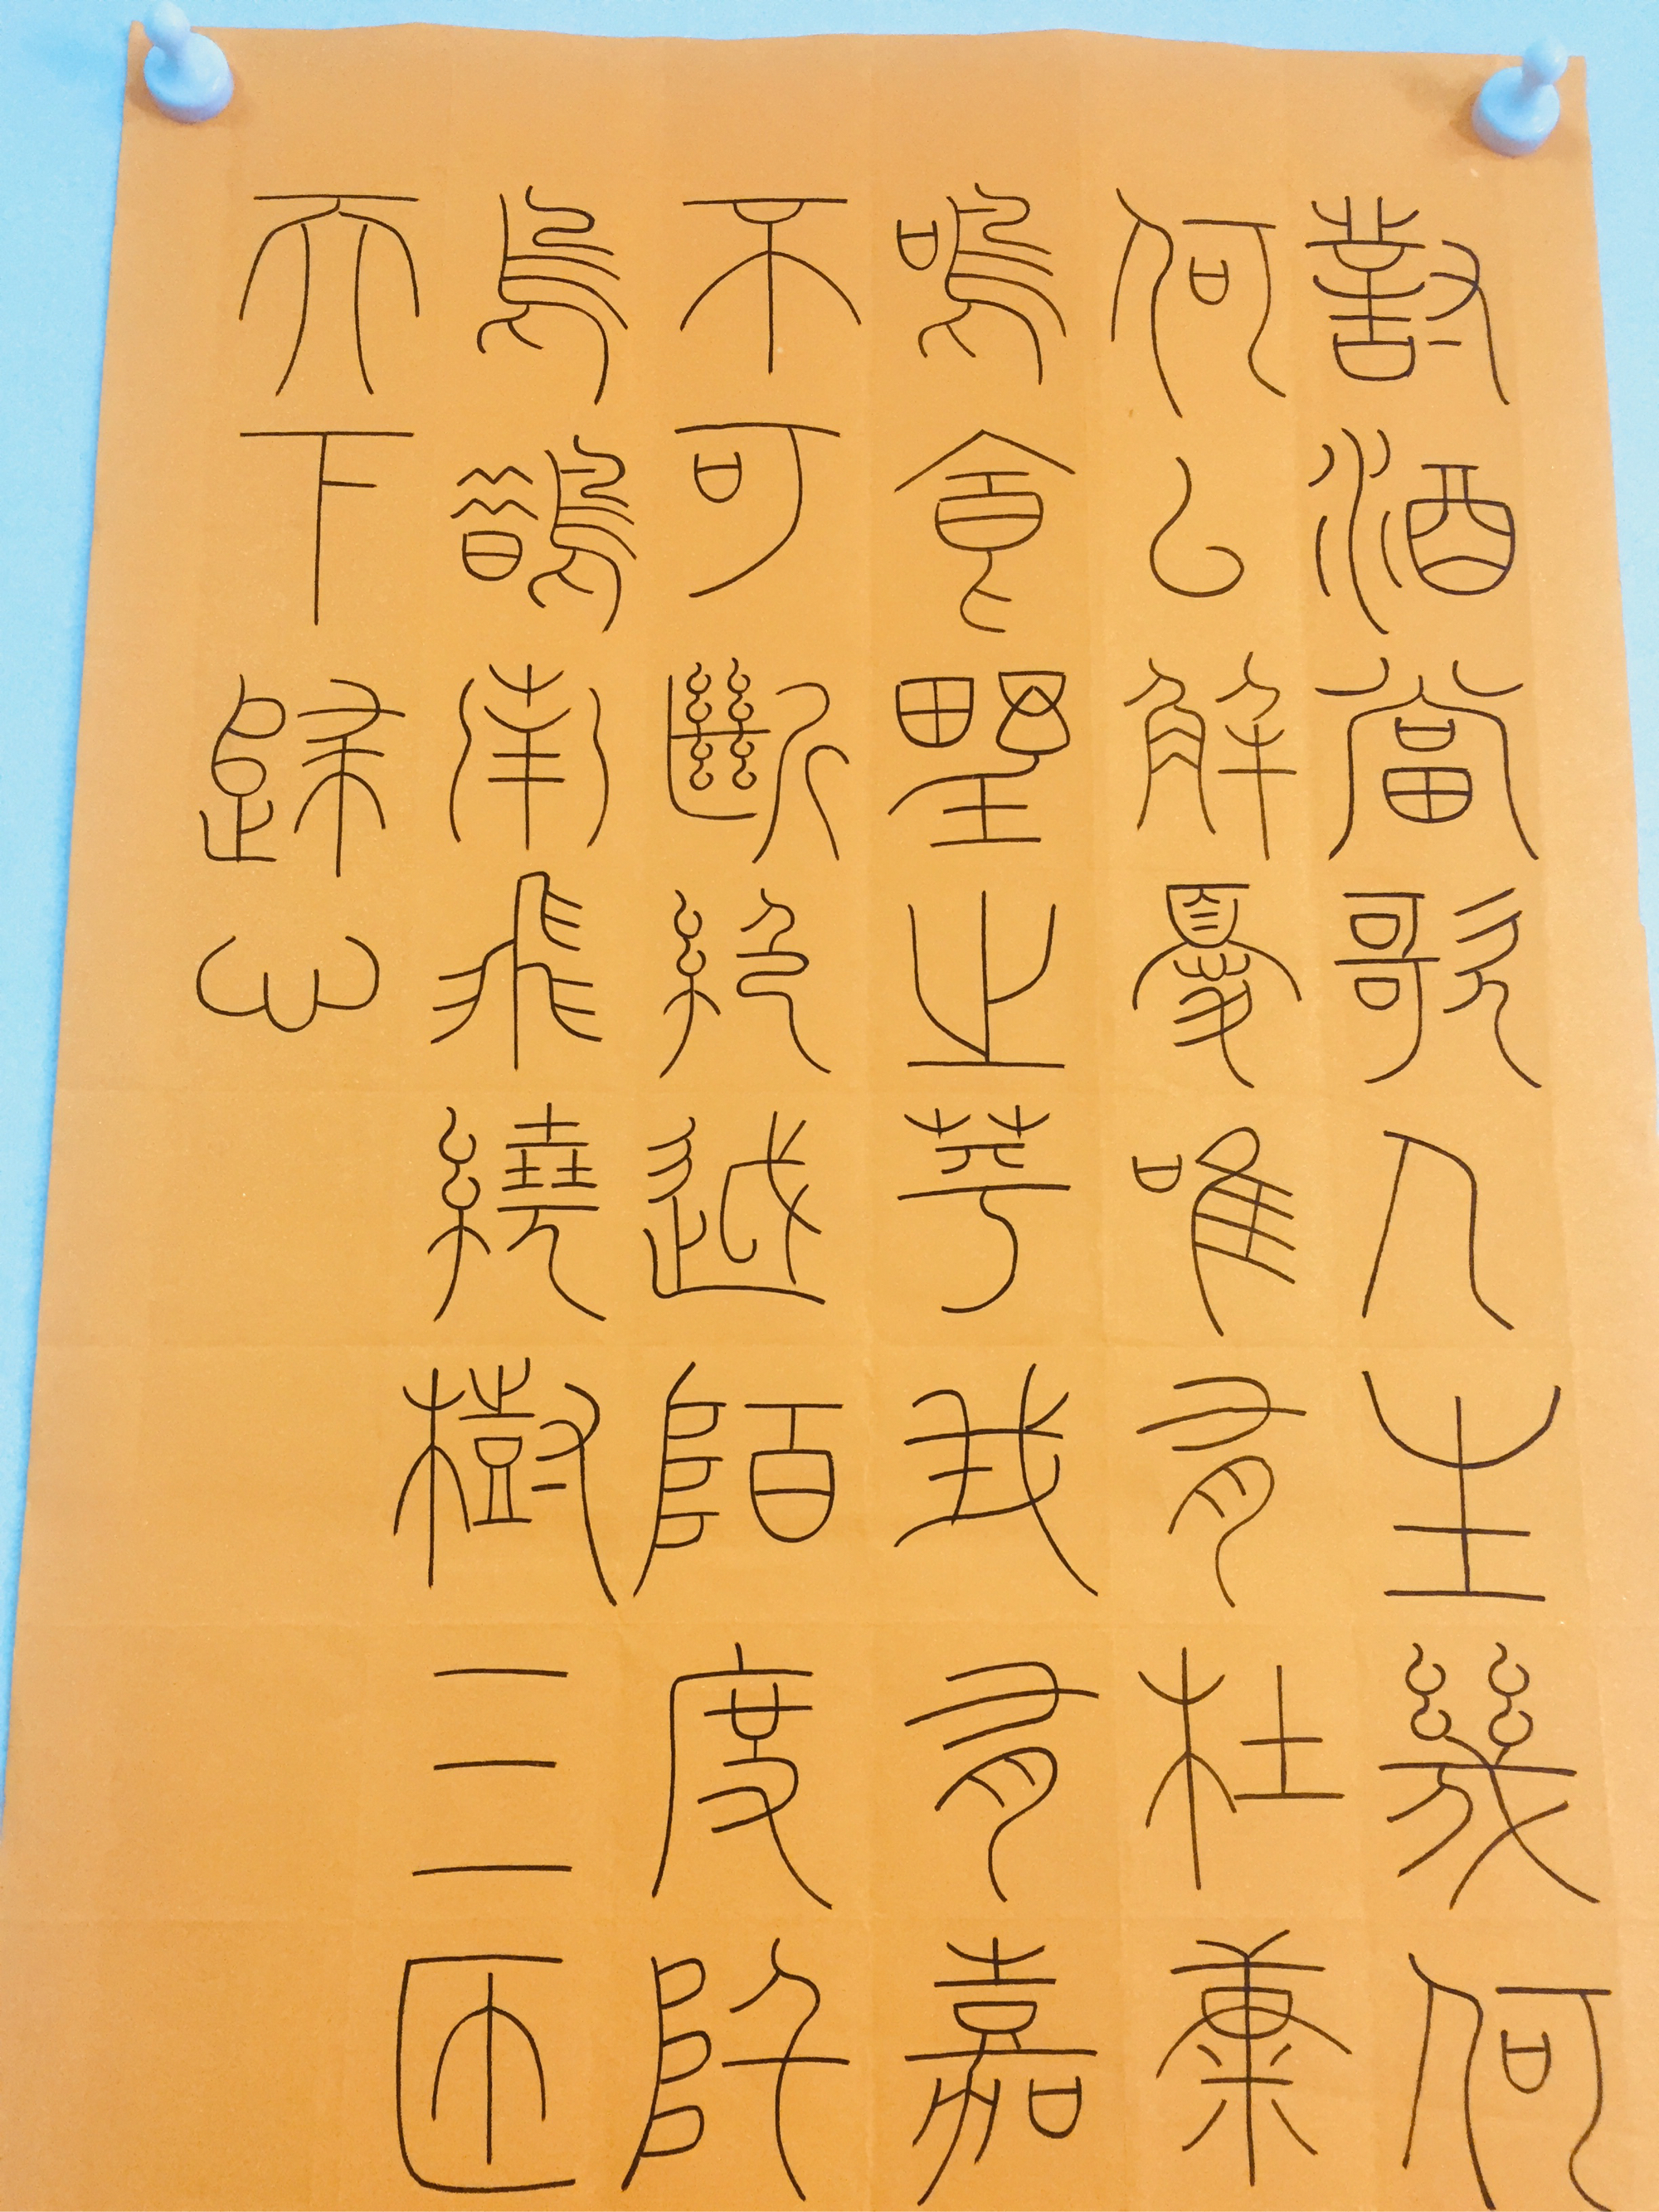 對酒當歌人生幾何
何以解憂唯有杜康
鳴食野之苹我有嘉
不可斷絕越陌度阡
烏鵲南飛繞樹三匝
天下歸心